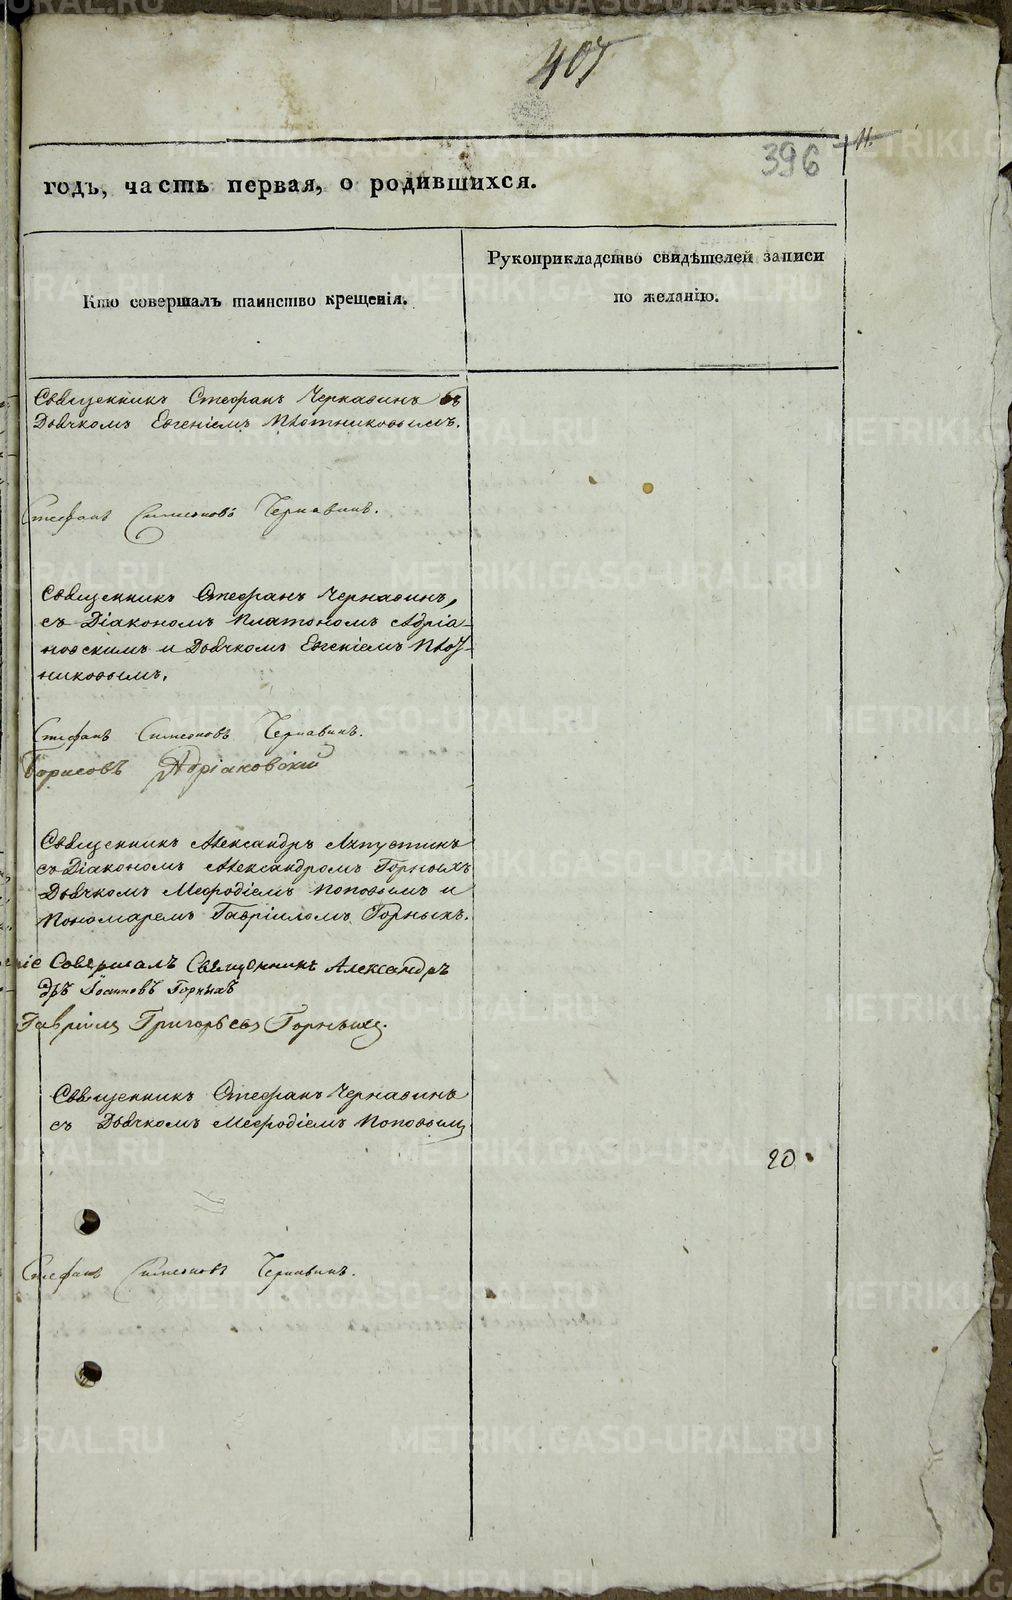 407
396
11.
годъ, часть первая, о родившихся.
Кто совершалъ таинство крещенія.
Рукоприкладство свидѣтелей записи
по желанію.
Священникъ Стефанъ Чернавинъ съ
Дьячкомъ Евгеніемъ Плотниковымъ.
Стефанъ Симеоновъ Чернавинъ.
Священникъ Стефанъ Чернавинъ,
съ Діакономъ Платономъ Адріа-
новскимъ и Дьячкомъ Евгеніемъ Плот-
никовымъ.
Стефанъ Симеоновъ Чернавинъ.
Борисовъ Адріановскій
Священникъ Александръ
съ Діакономъ Александромъ Горныхъ
Дьячкомъ Меѳодіемъ Поповымъ и
Пономаремъ Гавріиломъ Горныхъ.
Совершалъ Священникъ Александръ
дръ Іоанновъ Горныхъ
Гавріилъ Григорьевъ Горныхъ.
Священникъ Стефанъ Чернавинъ
съ Дьячкомъ Меѳодіемъ Поповымъ
20
Стефанъ Симеоновъ Чернавинъ.
METRIKI.GASO-URAL.RU